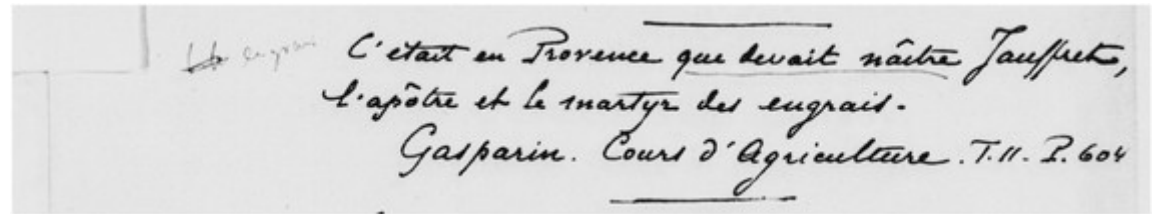 engrais
C'était en Provence que devait naître Jauffret,
l'apôtre et le martyr des engrais.
Gasparin. Cours d'Agriculture. T.II. P. 604